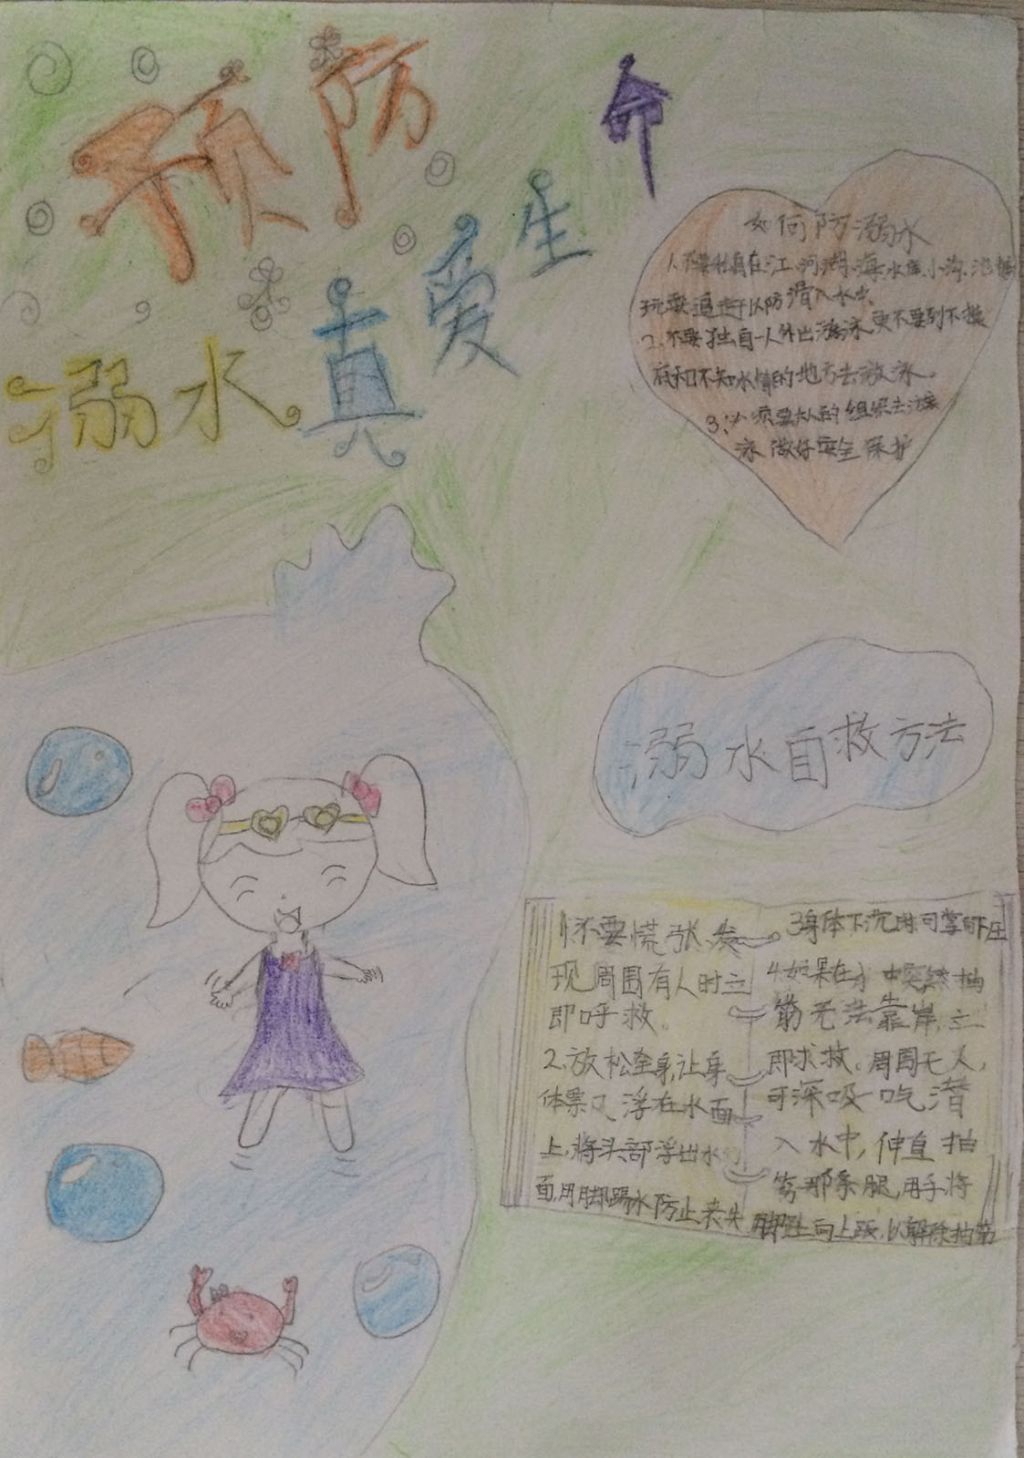 预防
溺水
真爱生命
如何防溺水
1、不要私自在江、河、湖、海、水库、小沟、池塘
玩耍、追赶、以防滑入水中。
2、不要独自一人外出游泳,更不要到不摸
底和不知水情的地方去游泳。
3、必须要大人的组织去游
泳,做好安全保护
溺水自救方法
1不要慌张,发
现周围有人时立
即呼救。
2、放松全身,让身
体漂浮在水面
上,将头部浮出水
面,用脚踢水防止丧失
3身体下沉时可掌向下压
4.如果在水中突然抽
筋,无法靠岸,立
即求救。周围无人,
可深吸一吃潜
入水中,伸直抽
筋那条腿,用手将
脚趾向上跃,以解除抽筋